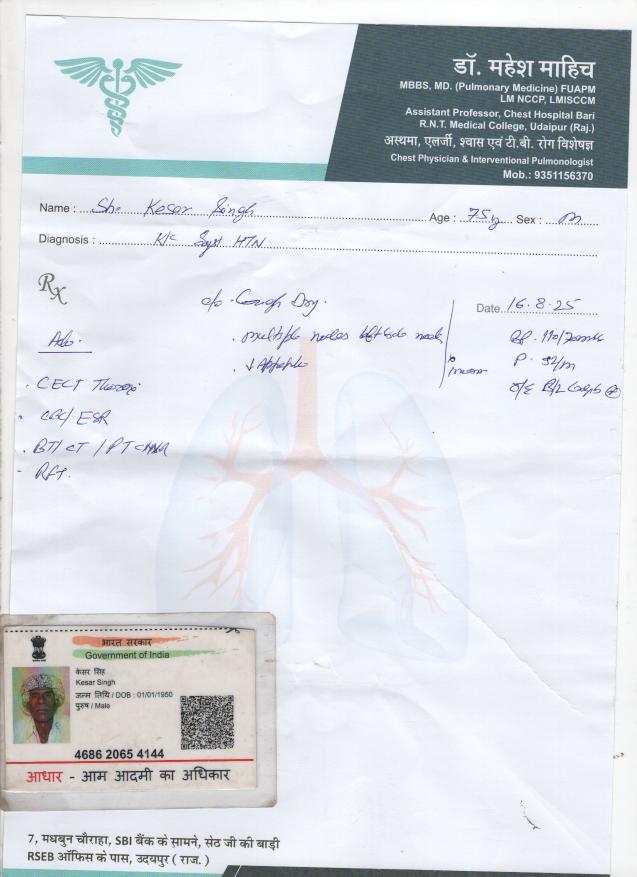 डॉ. महेश माहिच
MBBS, MD. (Pulmonary Medicine) FUAPM
LM NCCP, LMISCCM
Assistant Professor, Chest Hospital Bari
R.N.T. Medical College, Udaipur (Raj.)
अस्थमा, एलर्जी, श्वास एवं टी.बी. रोग विशेषज्ञ
Chest Physician & Interventional Pulmonologist
Mob.: 9351156370
Name : Shri Kesar Singh Age : 75y Sex : m
Diagnosis : K/C Syst HTN.
Rx
c/o - Cough Dry. Date 16.8.25
Adv. . multiple nodes neck BP. 110/70mmHg
. ↓ Appetite P - 92/m
. CECT Thorax O/E B/L
. CBC/ESR
. BT/CT/PT
- RFT.
भारत सरकार
Government of India
केसर सिंह
Kesar Singh
जन्म तिथि / DOB : 01/01/1950
पुरुष / Male
4686 2065 4144
आधार - आम आदमी का अधिकार
7, मधबुन चौराहा, SBI बैंक के सामने, सेठ जी की बाड़ी
RSEB ऑफिस के पास, उदयपुर ( राज. )